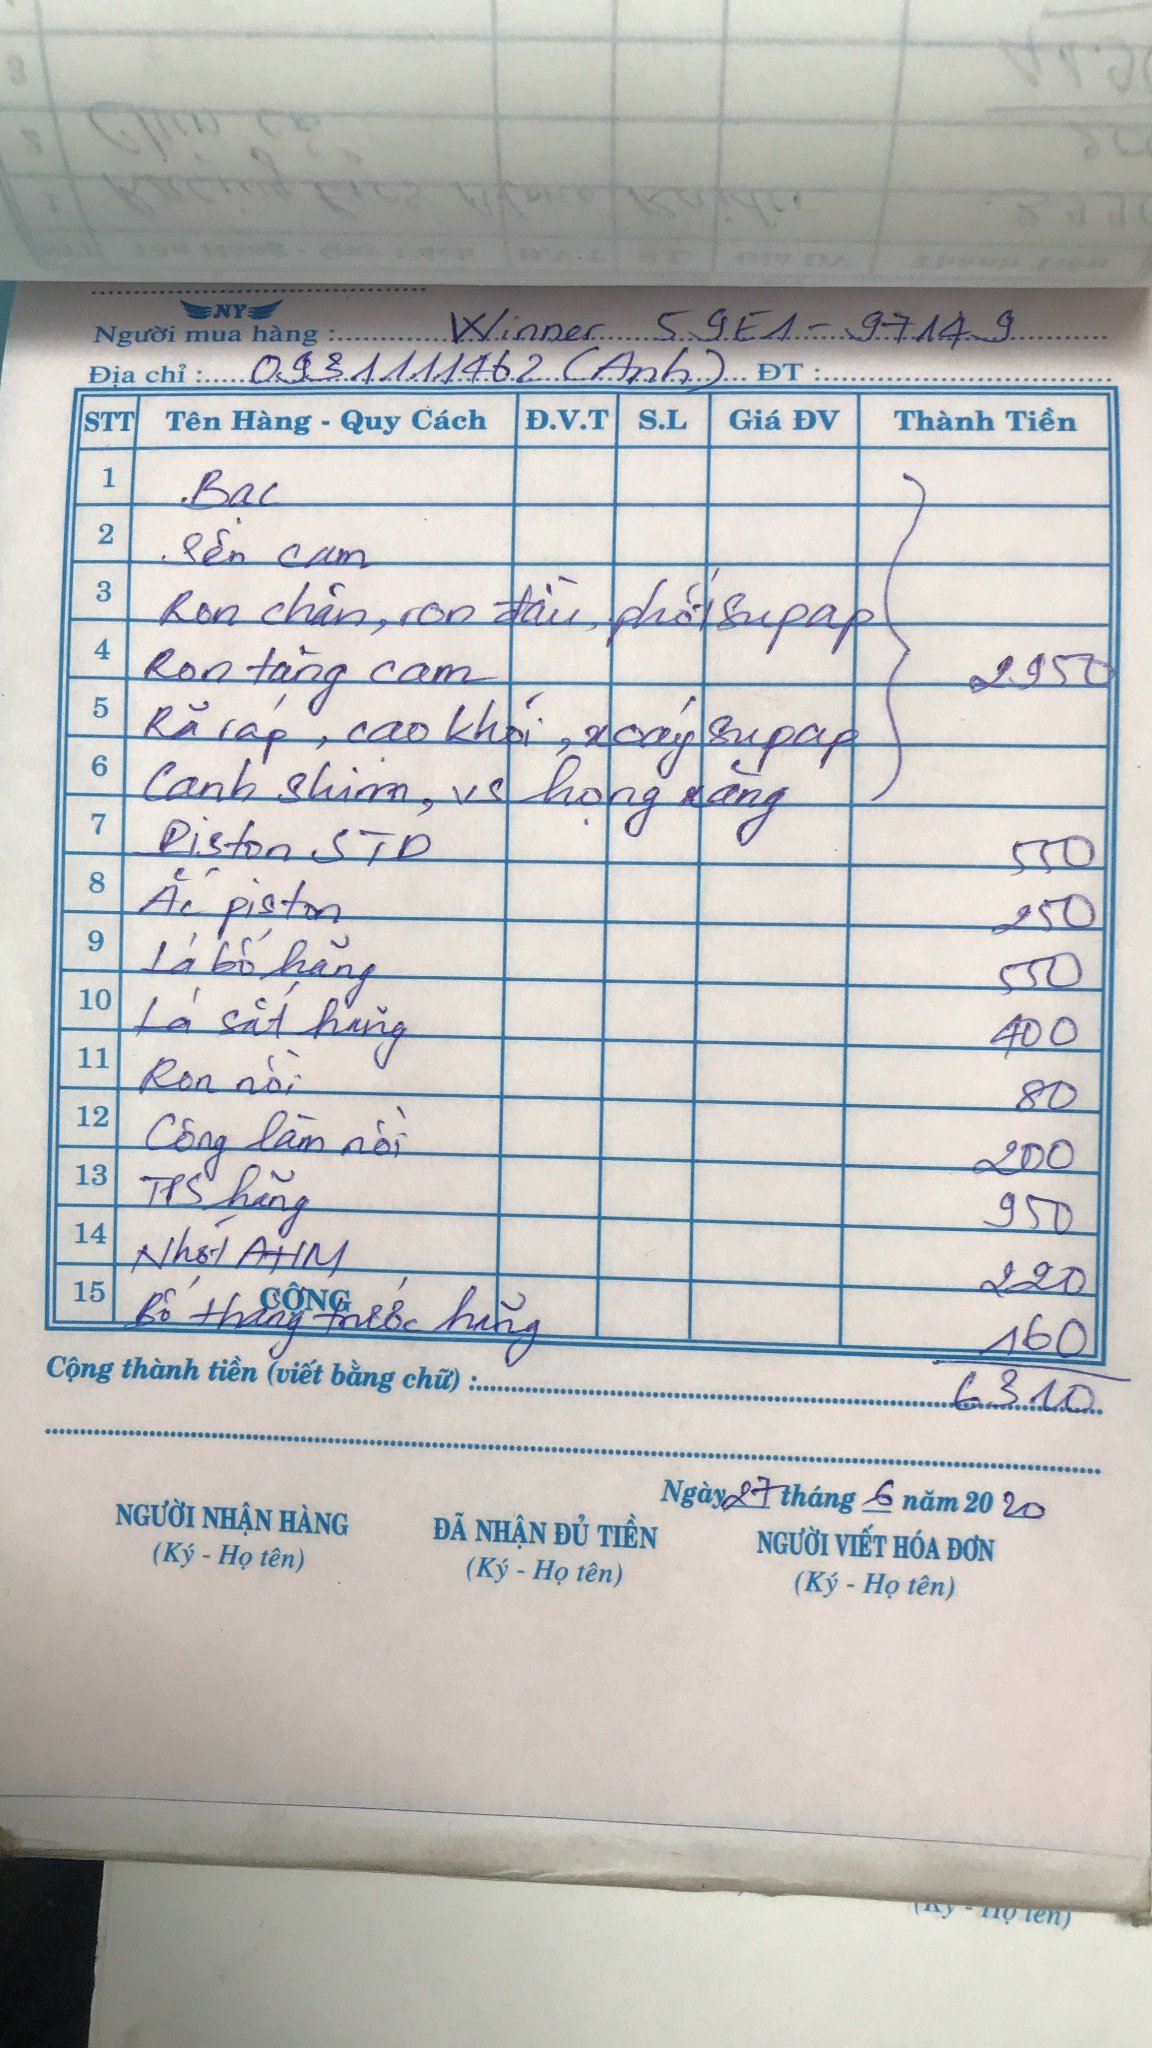 NY
Người mua hàng : Winner 59E1-97149
Địa chỉ : 0931111462 (Anh) ĐT :
STT Tên Hàng - Quy Cách Đ.V.T S.L Giá ĐV Thành Tiền
1 Bạc
2 Sên cam
3 Ron chân, ron đầu, phốt supap
4 Ron tăng cam 2950
5 Rã ráp, cao khối, xoáy supap
6 Canh shim, vs họng xăng
7 Piston STD 550
8 Ắc piston 250
9 Lá bố hãng 550
10 Lá sắt hãng 400
11 Ron nồi 80
12 Công làm nồi 200
13 TPS hãng 950
14 Nhớt AHM 220
15 Bố thắng trước hãng 160
CỘNG
Cộng thành tiền (viết bằng chữ) : 6310
Ngày 27 tháng 6 năm 20 20
NGƯỜI NHẬN HÀNG ĐÃ NHẬN ĐỦ TIỀN NGƯỜI VIẾT HÓA ĐƠN
(Ký - Họ tên) (Ký - Họ tên) (Ký - Họ tên)
(Ký - Họ tên)